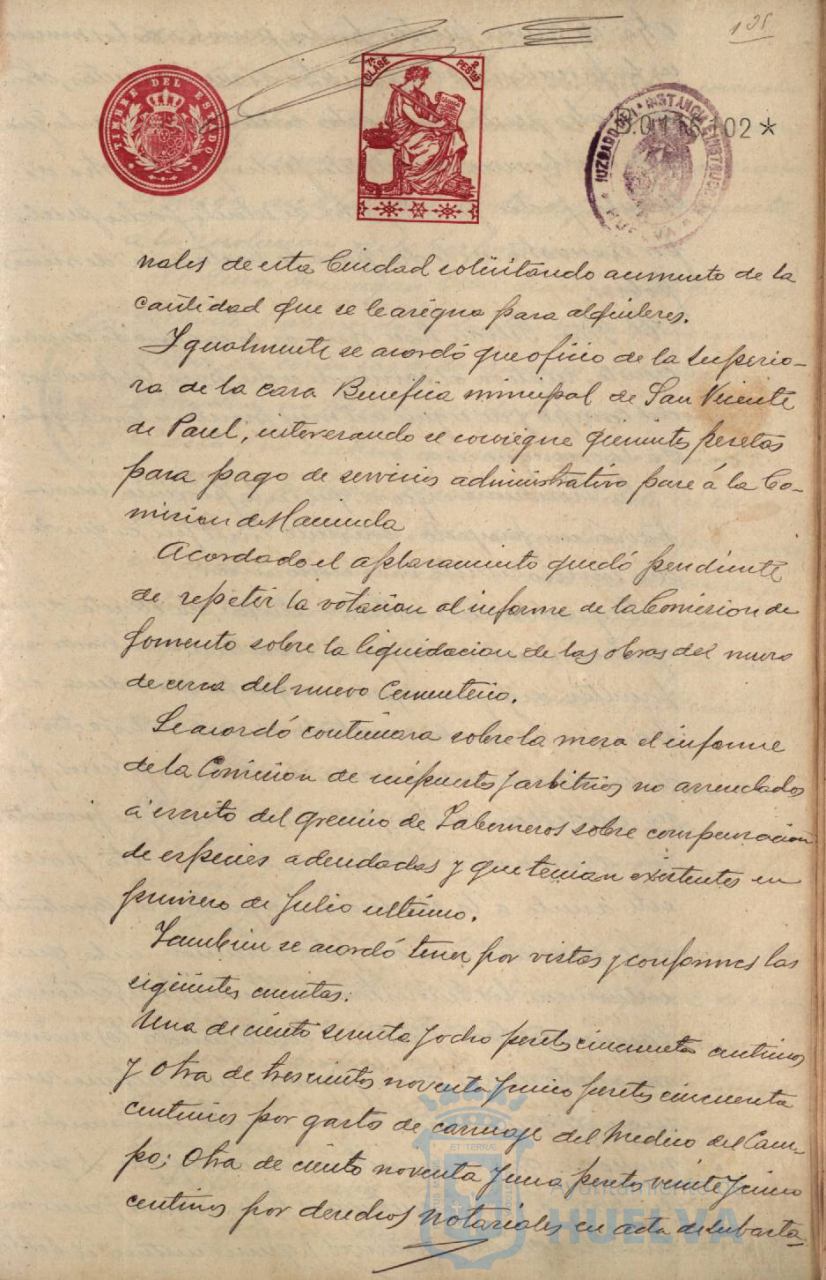 125
TIMBRE DEL ESTADO
7ª CLASE
2 PESTAS
B.0.116.102*
JUZGADO DE 1ª INSTANCIA E INSTRUCCION
HUELVA
nales de esta Ciudad solicitando aumento de la
cantidad que se le asigna para alquileres.
Igualmente se acordó que oficio de la Superio-
ra de la casa Benefica municipal de San Vicente
de Paul, interesando se consigne quinientas pesetas
para pago de servicios administrativo pase á la Co-
mision de Hacienda
Acordado el aplasamiento quedó pendiente
de repetir la votacion al informe de la Comision de
fomento sobre la liquidacion de las obras del muro
de cerca del nuevo Cementerio.
Se acordó continuara sobre la mesa el informe
de la Comision de impuestos y arbitrios no arrendados
á escrito del gremio de Taberneros sobre compensacion
de especies adeudadas y que tenian existentes en
primero de Julio ultimo.
Tambien se acordó tener por vistas y conformes las
sigüientes cuentas:
Una de ciento sesenta y ocho pesetas cincuenta centimos
y otra de trescientos noventa y cinco pesetas cincuenta
centimos por gasto de carruaje del Medico del Cam-
po; Otra de ciento noventa y una pesetas veinte y cinco
centimos por derechos notariales en acta de subasta
ET TERRAE
Ayuntamiento
HUELVA